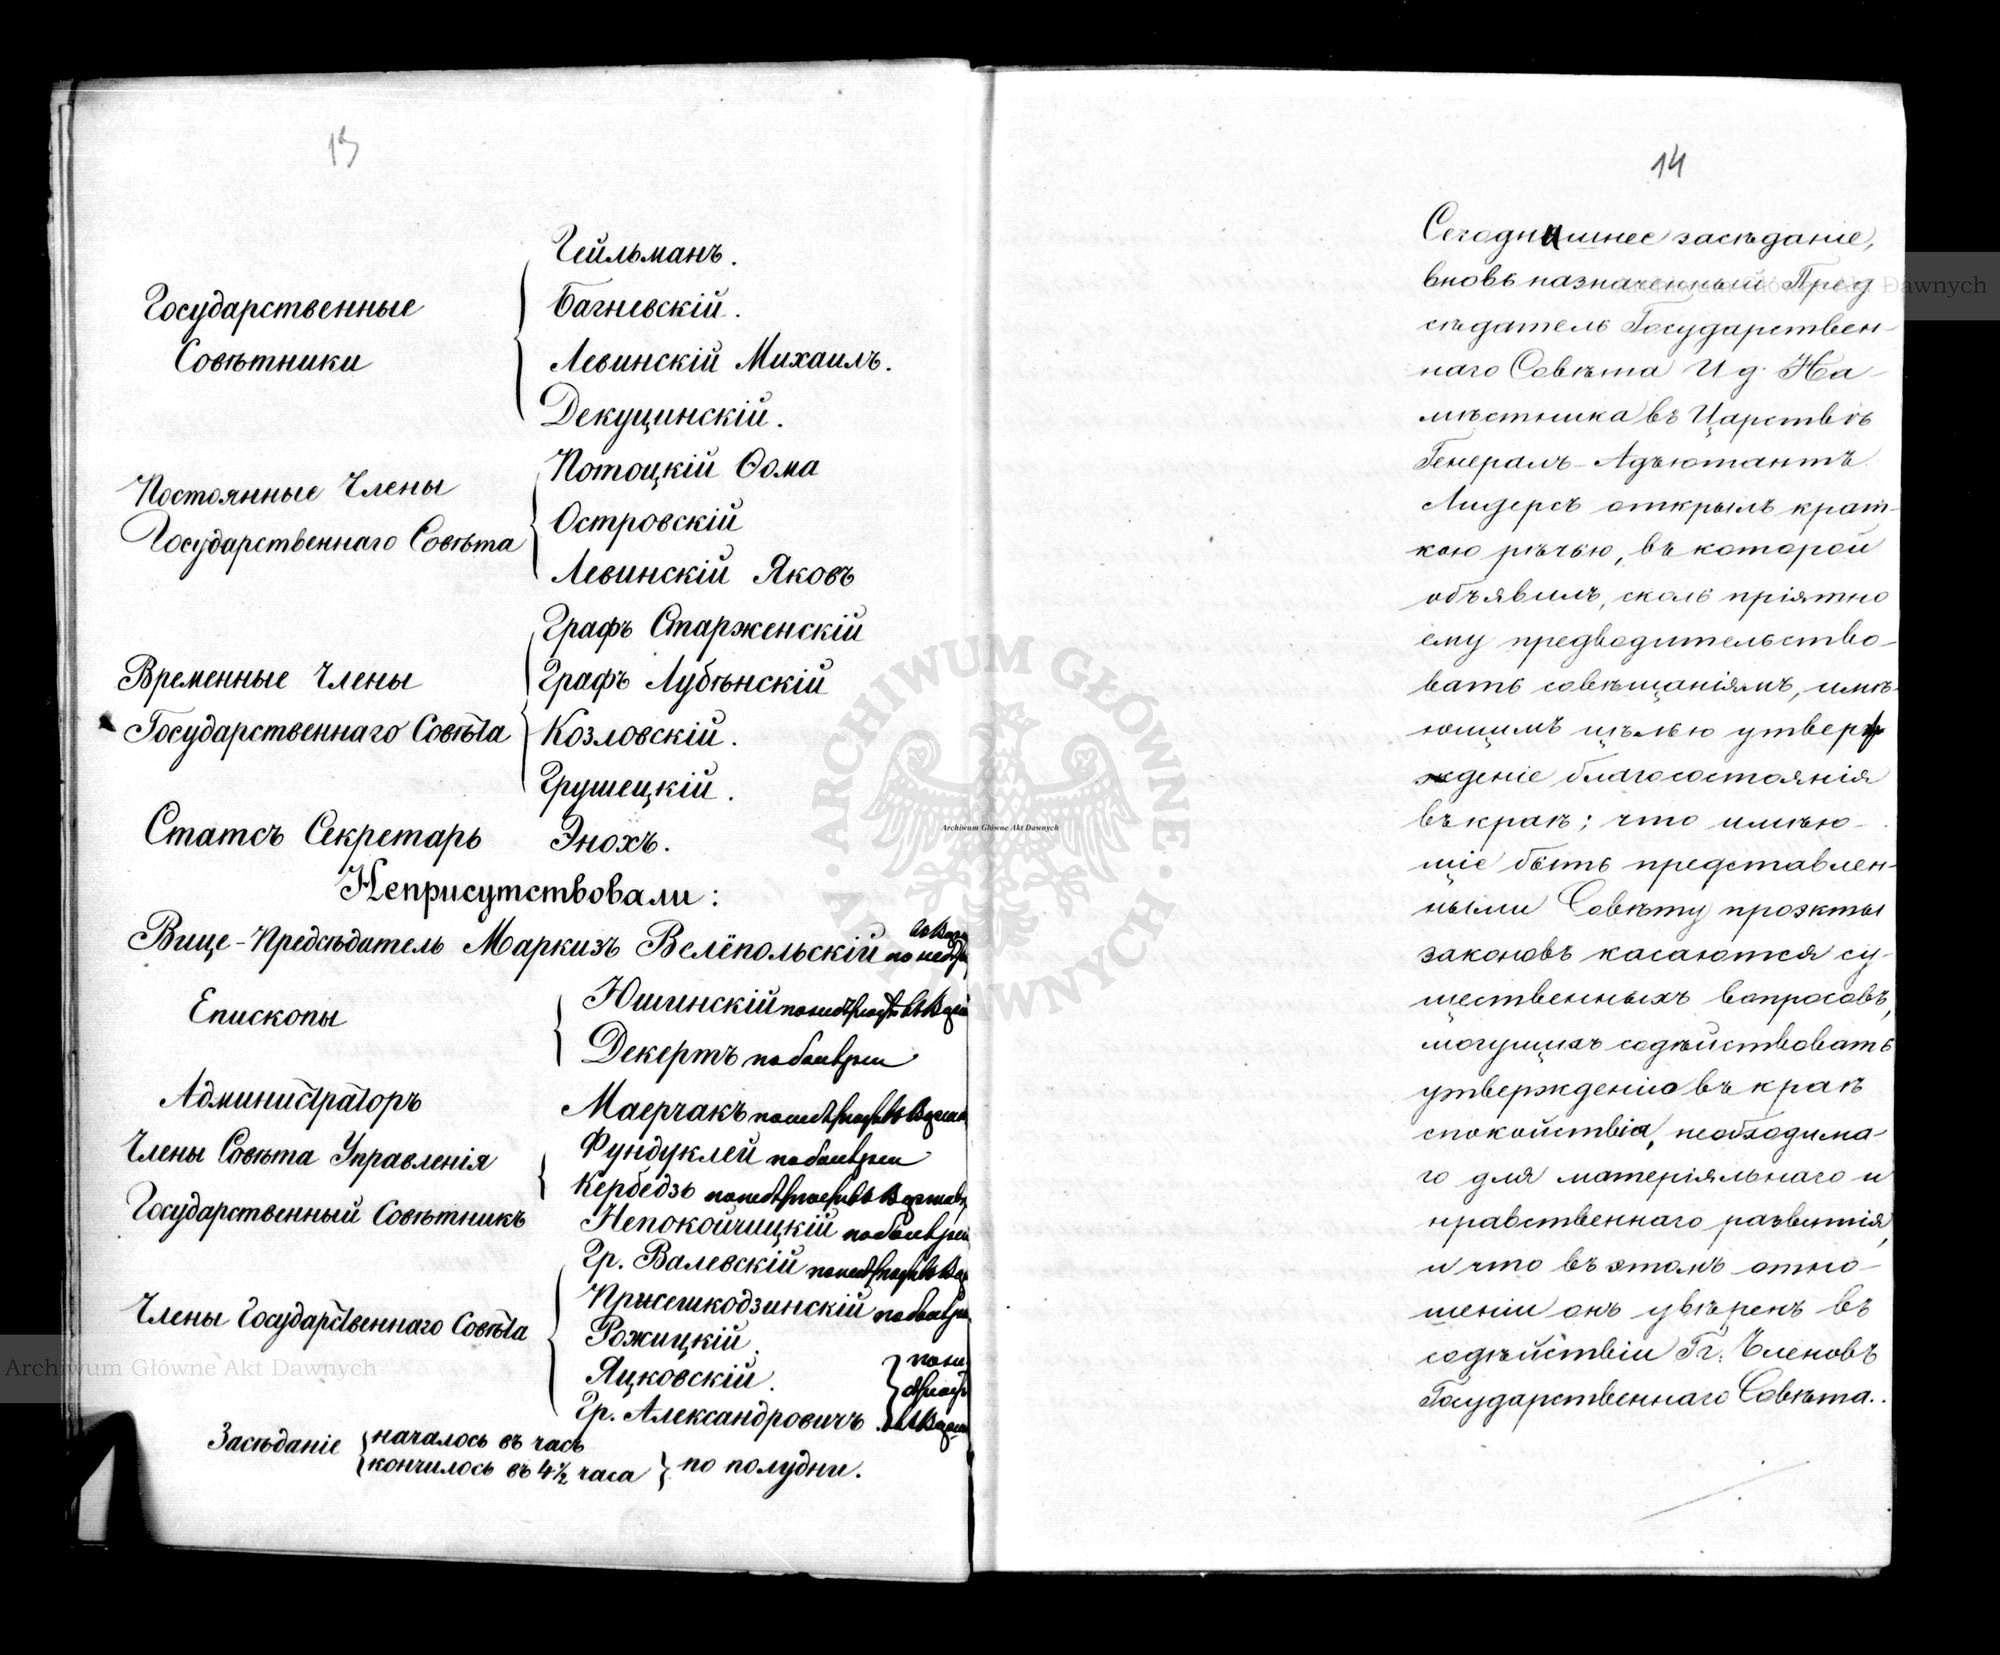 13
Государственные
Совѣтники
Гейльманъ.
Багневскій.
Левинскій Михаилъ.
Декуцинскій.
Постоянные Члены
Государственнаго Совѣта
Потоцкій Ѳома
Островскій
Левинскій Яковъ
Временные Члены
Государственнаго Совѣта
Графъ Старженскій
Графъ Лубѣнскій
Козловскій.
Грушецкій.
Статсъ Секретарь Энохъ.
Неприсутствовали:
Вице-Предсѣдатель Маркизъ Велёпольскій
Епископы
Юшинскій
Декертъ по болезни
Администраторъ Маерчакъ
Члены Совѣта Управленія
Фундуклей по болезни
Кербедзь
Государственный Совѣтникъ Непокойчицкій по болезни
Члены Государственнаго Совѣта
Гр. Валевскій
Присешкодзинскій
Рожицкій.
Яцковскій.
Гр. Александровичъ
Засѣданіе
началось въ часъ
кончилось въ 4½ часа
по полудни.
14
Сегодняшнее засѣданіе,
вновь назначенный Пред
сѣдатель Государствен-
наго Совѣта И д. На-
мѣстника въ Царствѣ
Генералъ-Адъютантъ
Лидерсъ открылъ крат-
кою рѣчью, въ которой
объявилъ, сколь пріятно
ему предводительство-
вать совѣщаніямъ, имѣ-
ющимъ цѣлью утвер
жденіе благосостоянія
въ краѣ; что имѣю-
щіе быть представлен-
ными Совѣту проэкты
законовъ касаются су-
щественныхъ вопросовъ,
могущихъ содѣйствовать
утвержденію въ краѣ
спокойствія, необходима-
го для матеріяльнаго и
нравственнаго развитія,
и что въ этомъ отно-
шеніи онъ увѣренъ въ
содѣйствіи Гг. Членовъ
Государственнаго Совѣта.
Archiwum Główne Akt Dawnych
ARCHIWUM GŁÓWNE AKT DAWNYCH
Archiwum Główne Akt Dawnych